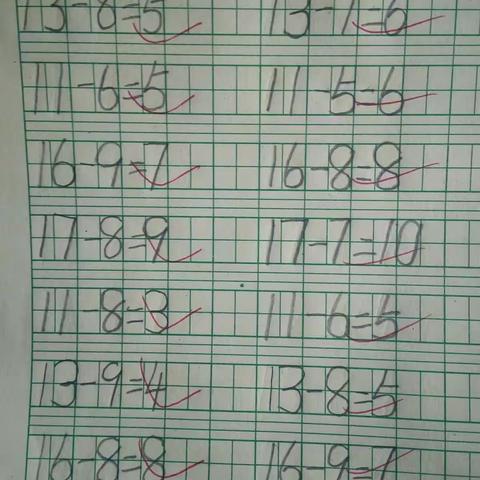 13-8=5 13-7=6
11-6=5 11-5=6
16-9=7 16-8=8
17-8=9 17-7=10
11-8=3 11-6=5
13-9=4 13-8=5
16-8=8 16-9=7